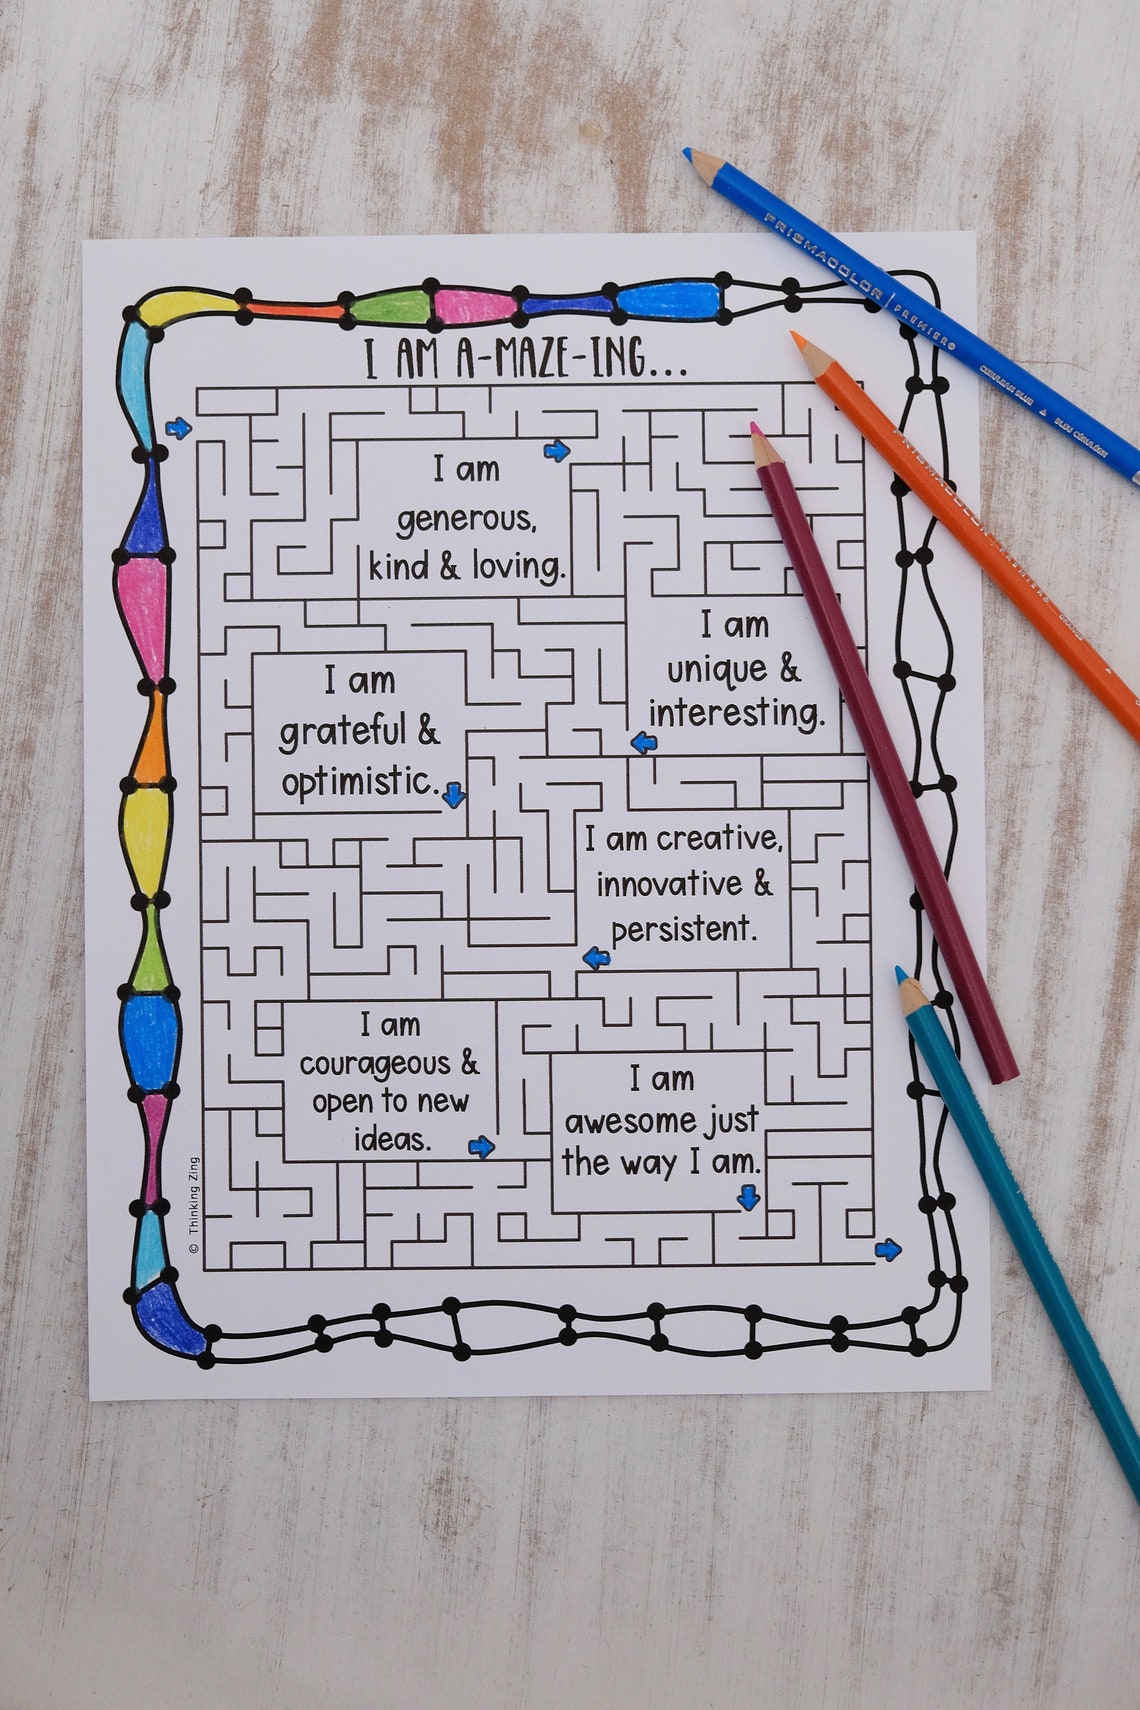 PRISMACOLOR PREMIER®
CERULEAN BLUE ▲ BLEU CÉRULÉEN
I AM A-MAZE-ING...
I am
generous,
kind & loving.
I am
unique &
interesting.
I am
grateful &
optimistic.
I am creative,
innovative &
persistent.
I am
courageous &
open to new
ideas.
I am
awesome just
the way I am.
© Thinking Zing